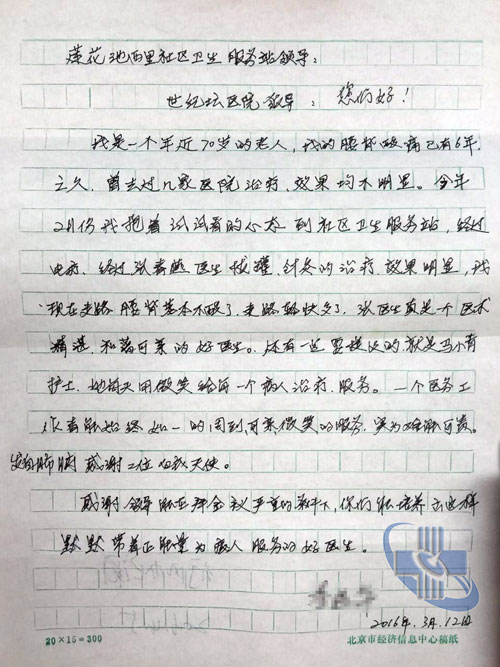 莲花池西里社区卫生服务站领导：
世纪坛医院领导：您们好！
我是一个年近70岁的老人，我的腰背酸痛已有6年
之久，曾去过几家医院治疗，效果均不明显。今年
2月份我抱着试试看的心态到社区卫生服务站，经过
电疗、经过张春燕医生拔罐、针灸的治疗，效果明显，我
现在走路腰背基本不酸了，走路轻快多了，张医生真是一个医术
精湛，和蔼可亲的好医生。还有一些要提及的就是马小青
护士，她每天用微笑给每一个病人治疗、服务。一个医务工
作者能始终如一的周到可亲，微笑的服务，实为难能可贵。
发自肺腑感谢二位白衣天使。
感谢领导能在拜金主义严重的条件下，你们能培养出这样
默默带着正能量为病人服务的好医生。
2016年.3月.12日
20×15=300
北京市经济信息中心稿纸